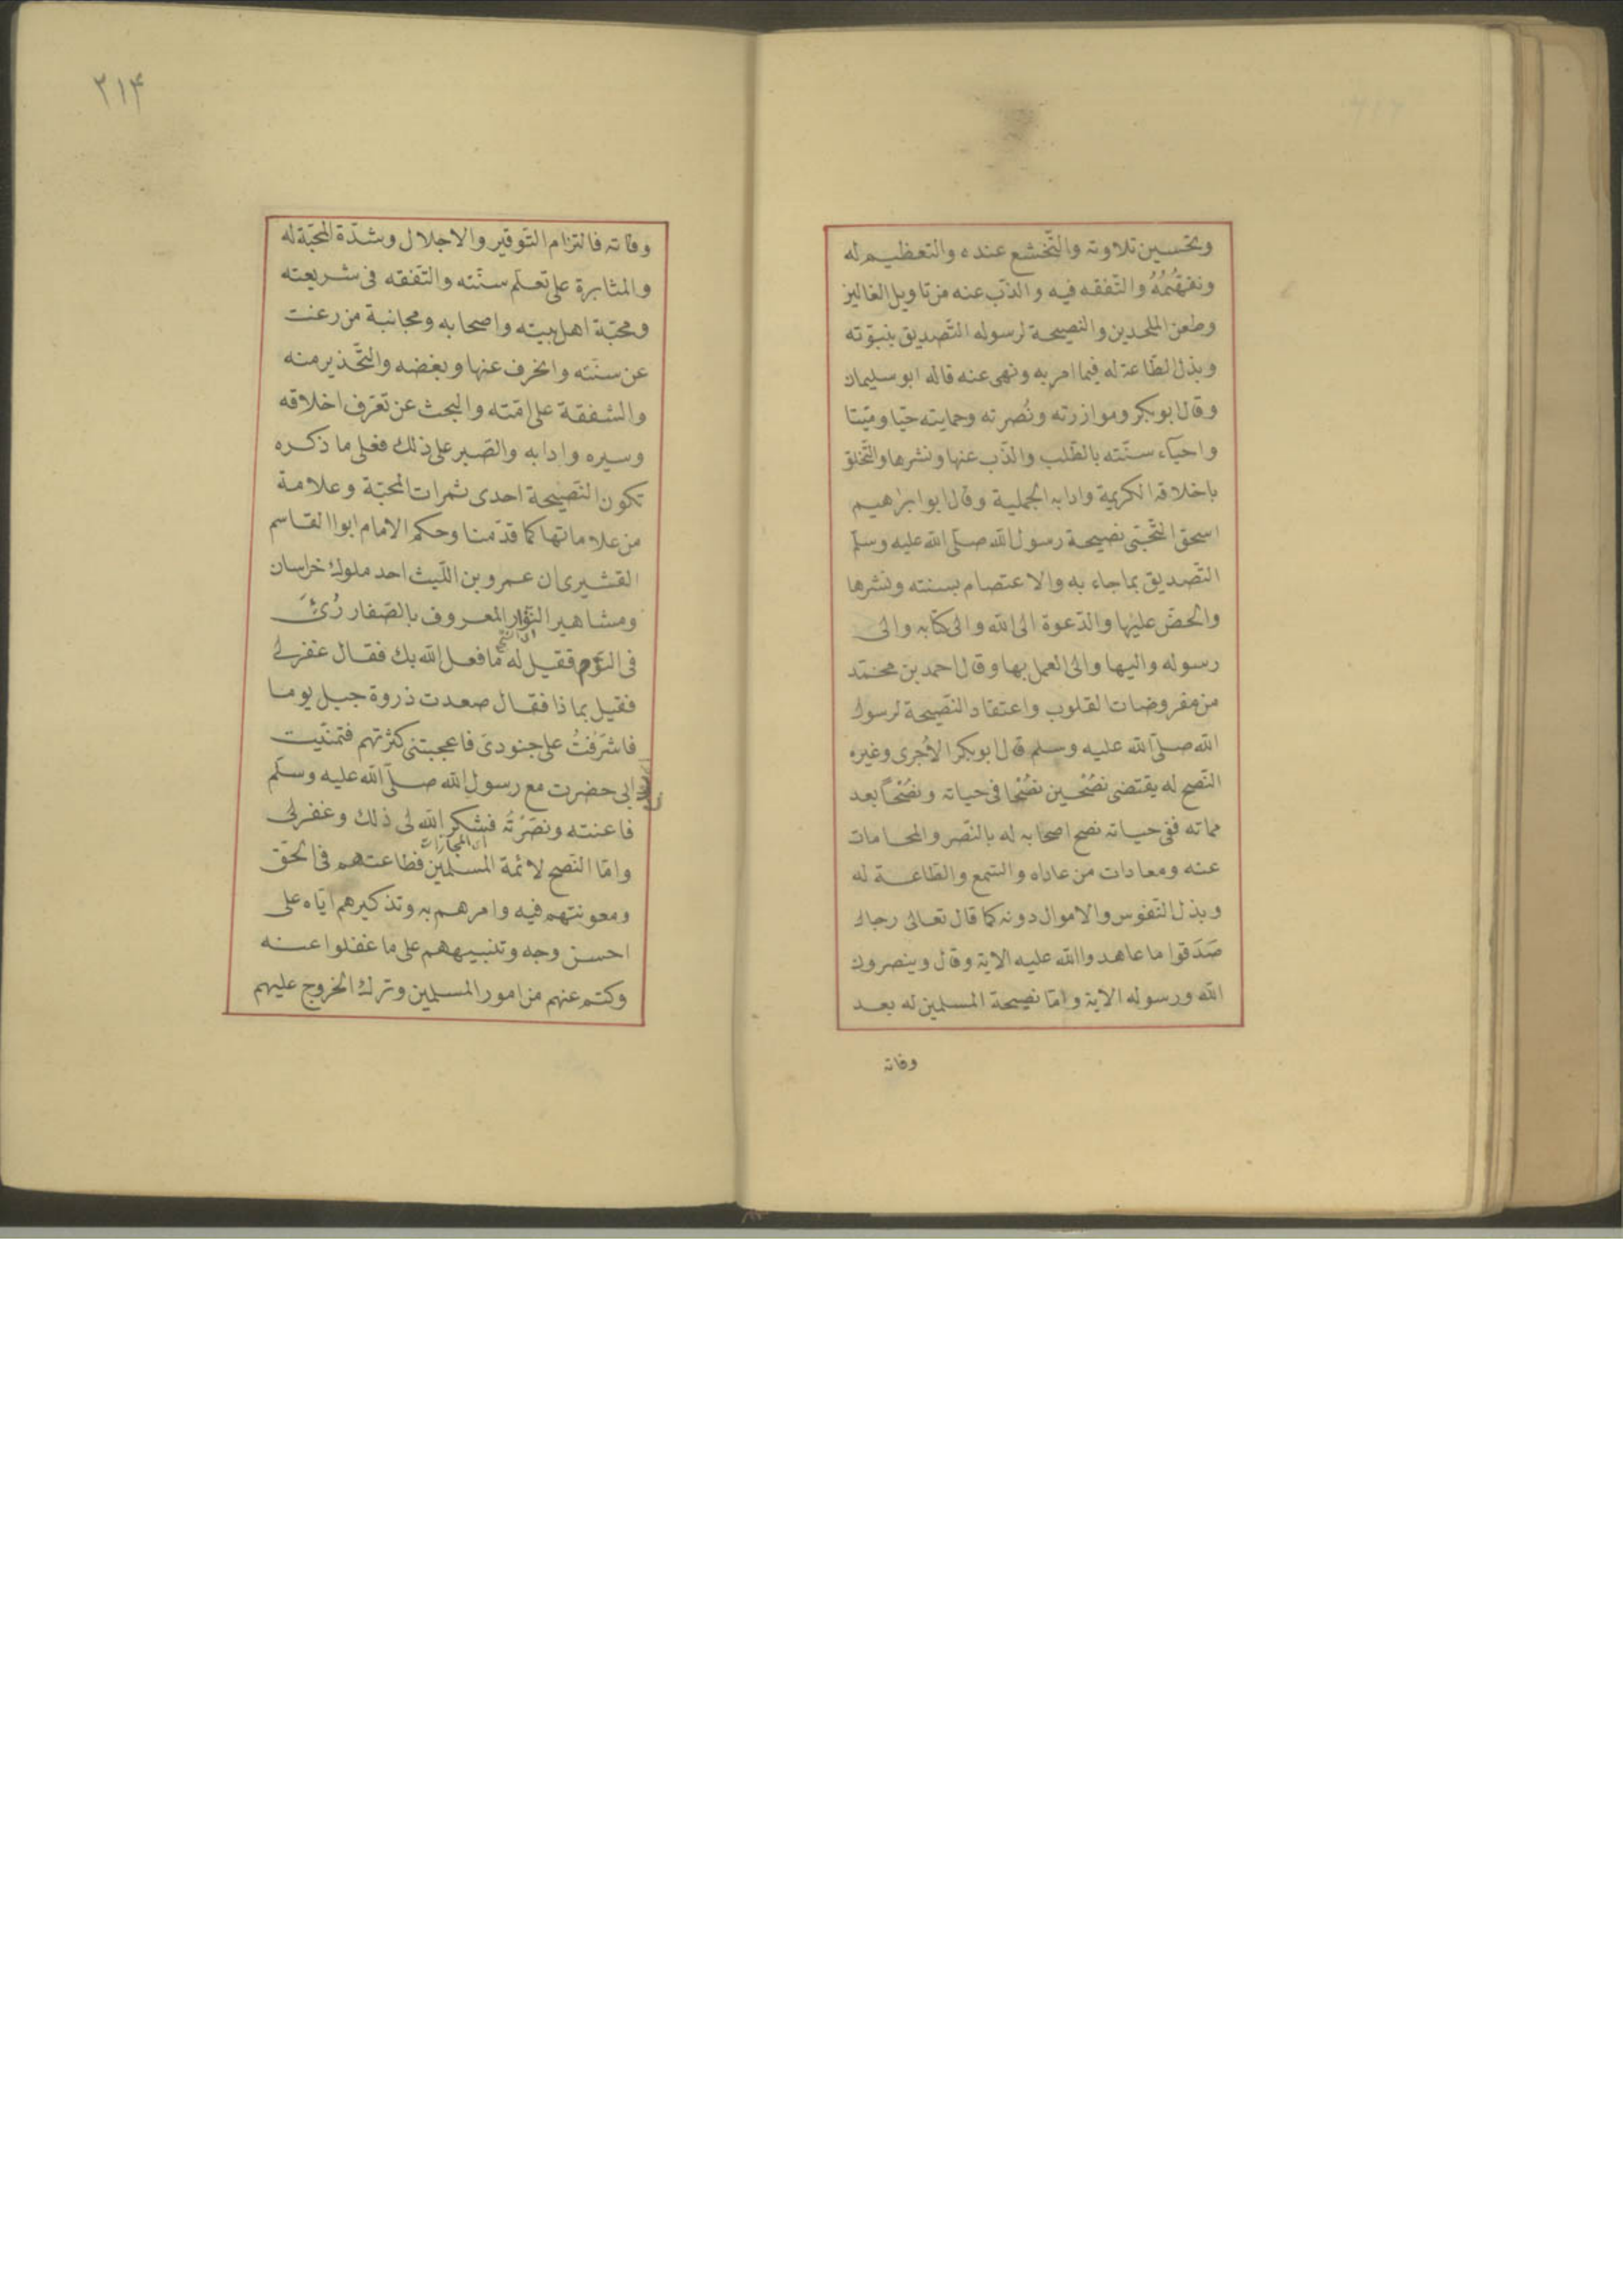 وتحسين تلاوته والتّخشع عنده والتعظيم له
وتفهّمُهُ والتّفقه فيه والذّب عنه من تاويل الغالين
وطعن الملحدين والنصيحة لرسوله التّصديق بنبوّته
وبذل الطّاعة له فيما امر به ونهى عنه قاله ابو سليمان
وقال ابو بكر وموازرته ونُصرته وحمايته حيّا وميّتا
واحياء سنّته بالطّلب والذّب عنها ونشرها والتّخلق
باخلاقه الكريمة وادابه الجميلة وقال ابو ابراهيم
اسحق التّجيبى نصيحة رسول الله صلّى الله عليه وسلّم
التّصديق بما جاء به والاعتصام بسنته ونشرها
والحضّ عليها والدّعوة الى الله والى كتابه والى
رسوله واليها والى العمل بها وقال احمد بن محمّد
من مفروضات القلوب واعتقاد النّصيحة لرسول
الله صلّى الله عليه وسلم قال ابو بكر الآجرى وغيره
النّصح له يقتضى نصُحْين نصُحْا فى حياته ونصُحْاً بعد
مماته ففى حياته نصح اصحابه له بالنّصر والمحامات
عنه ومعادات من عاداه والسّمع والطّاعة له
وبذل النّفوس والاموال دونه كما قال تعالى رجال
صَدَقوا ما عاهدوا الله عليه الاية وقال وينصرون
الله ورسوله الاية وامّا نصيحة المسلمين له بعد
وفاته
٢١۴
وفاته فالتزام التّوقير والاجلال وشدّة المحبّة له
والمثابرة على تعلّم سنّته والتّفقه فى شريعته
ومحبّة اهل بيته واصحابه ومجانبة من رعنت
عن سنّته وانحرف عنها وبغضه والتّحذير منه
والشفقة على امّته والبحث عن تعرّف اخلاقه
وسيره وادابه والصّبر على ذلك فعلى ما ذكره
تكون النّصيحة احدى ثمرات المحبّة وعلامة
من علاماتها كما قدّمنا وحكم الامام ابوا القاسم
القشيرى ان عمرو بن اللّيث احد ملوك خراسان
ومشاهير الثّوّار المعروف بالصّفار رُئىَ
فى النّوم فقيل له ما فعل الله بك فقال غفر لى
فقيل بماذا فقال صعدت ذروة جبل يوما
فاشرَفْتُ على جنودىَ فاعجبتنى كثرتهم فتمنّيت
انى حضرت مع رسول الله صلّى الله عليه وسلّم
فاعنته ونصَرْتُه فشكر الله لى ذلك وغفر لى
وامّا النّصح لائمّة المسلمين فطاعتهم فى الحّق
ومعونتهم فيه وامرهم به وتذكيرهم ايّاه على
احسن وجه وتنبيههم على ما غفلوا عنه
وكتم عنهم من امور المسلمين وترك الخروج عليهم